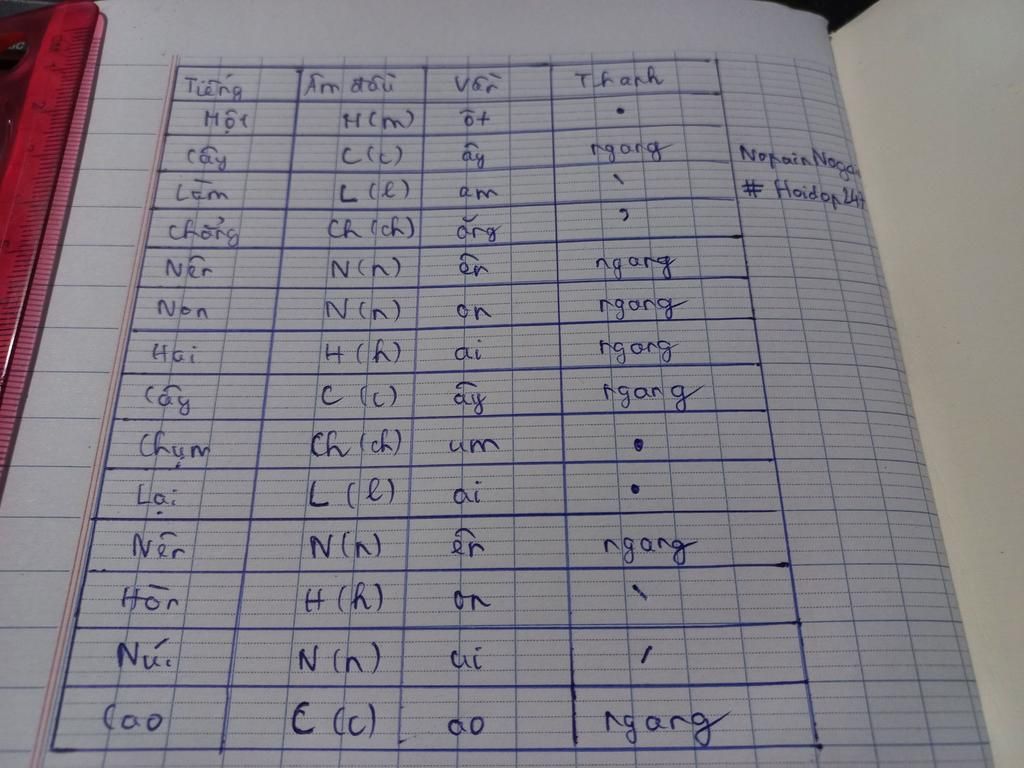 Tiếng Âm đầu Vần Thanh
Một H(m) ôt •
Cây C(c) ây ngang
Làm L(l) am `
Chẳng Ch(ch) ăng ̉
Nên N(n) ên ngang
Non N(n) on ngang
Hai H(h) ai ngang
Cây C(c) ây ngang
Chụm Ch(ch) um •
Lại L(l) ai •
Nên N(n) ên ngang
Hòn H(h) on `
Núi N(n) ui ´
Cao C(c) ao ngang
NopainNogain
# Hoidap247